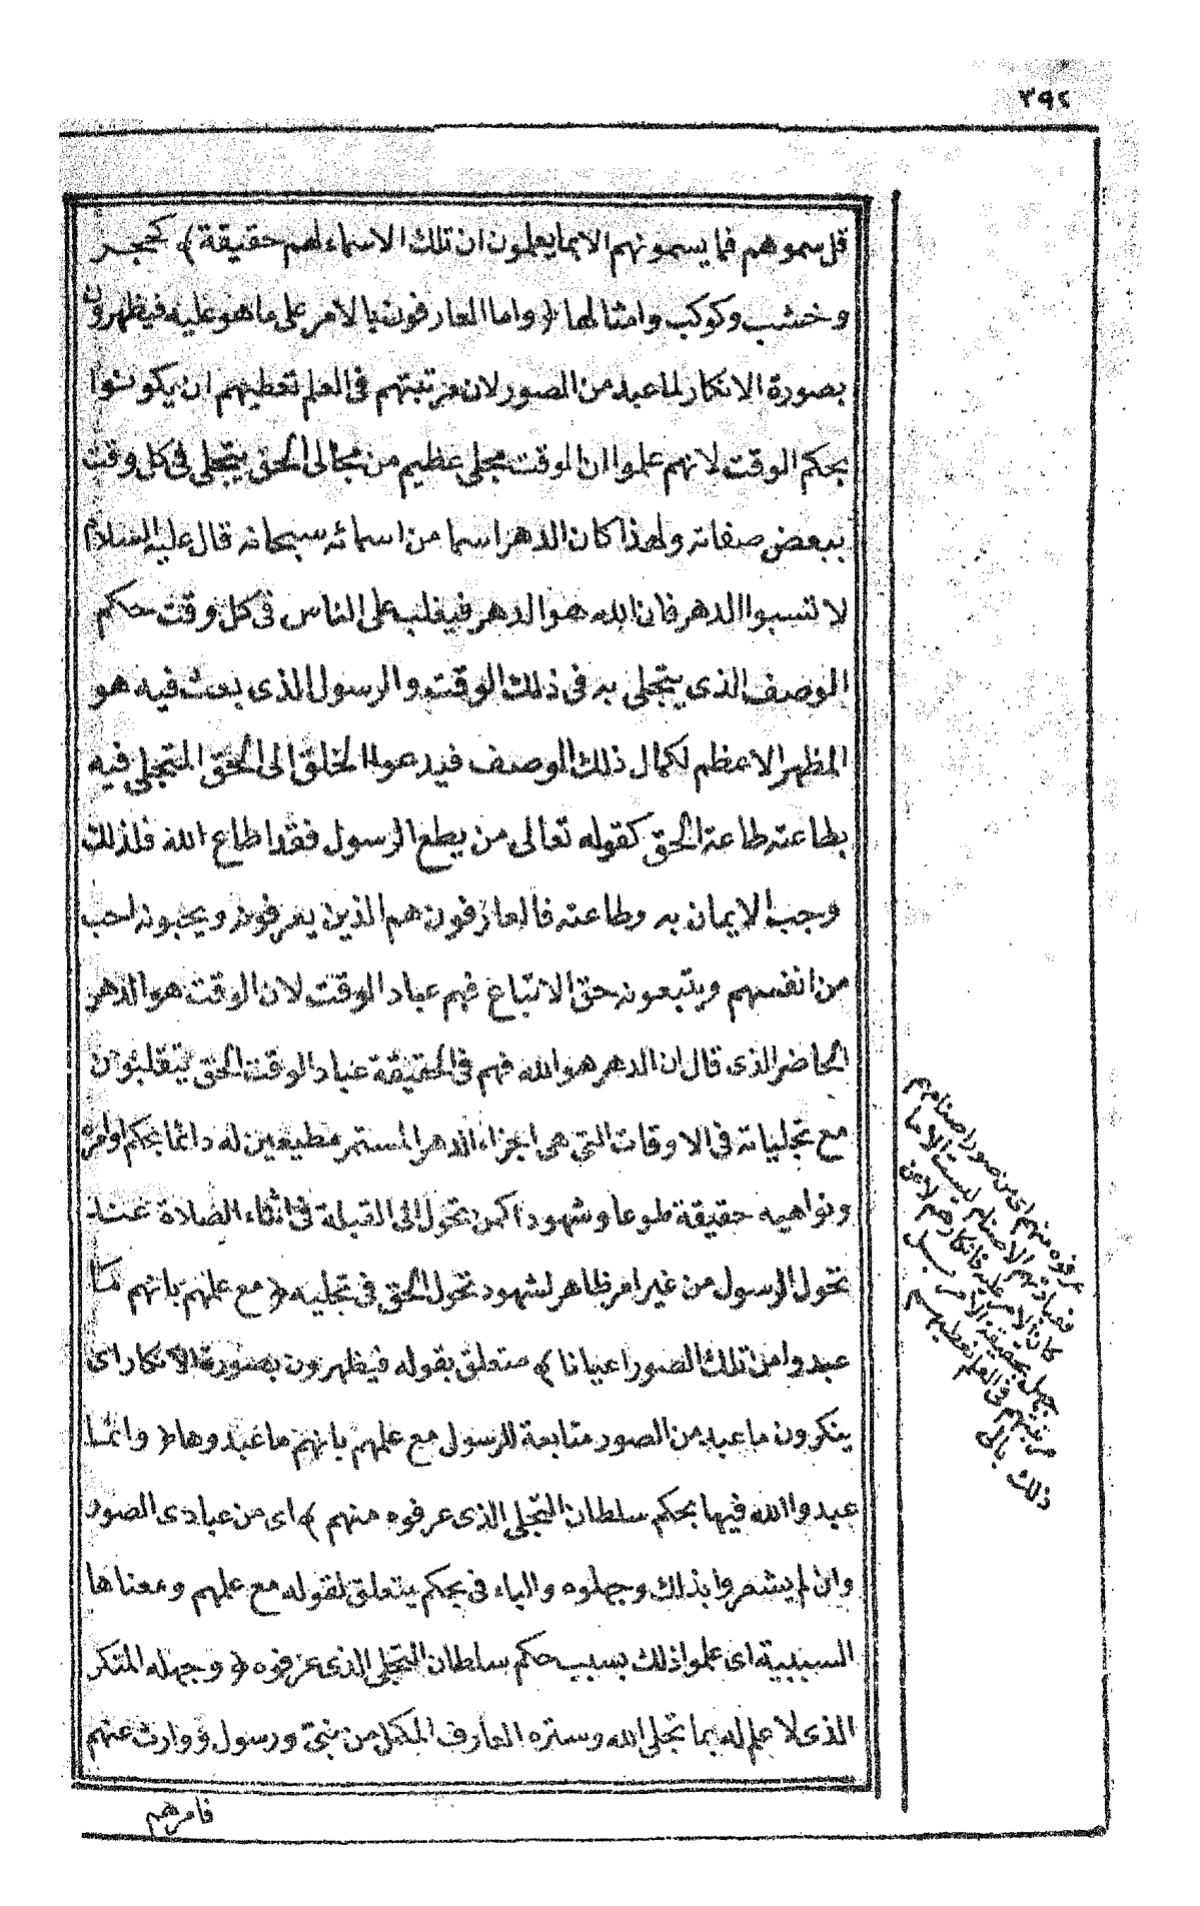 ٣٩٢
قل سموهم فما يسمونهم الا بما يعلمون ان تلك الاسماء لهم حقيقة ﴾ كحجر
وخشب وكوكب وامثالها ﴿ واما العارفون بالامر على ما هو عليه فيظهرون
بصورة الانكار لما عبد من الصور لان مرتبتهم فى العلم تعطيهم ان يكونوا
بحكم الوقت لانهم علموا ان الوقت مجلى عظيم من مجالى الحق يتجلى فى كل وقت
ببعض صفاته ولهذا كان الدهر اسما من اسمائه سبحانه قال عليه السلام
لا تسبوا الدهر فان الله هو الدهر فيغلب على الناس فى كل وقت حكم
الوصف الذى يتجلى به فى ذلك الوقت والرسول الذى بعث فيه هو
المظهر الاعظم لكمال ذلك الوصف فيدعوا الخلق الى الحق المتجلى فيه
بطاعته طاعة الحق كقوله تعالى من يطع الرسول فقد اطاع الله فلذلك
وجب الايمان به وطاعته فالعارفون هم الذين يعرفونه ويحبونه احب
من انفسهم ويتبعونه حق الاتباع فهم عباد الوقت لان الوقت هو الدهر
الحاضر الذى قال ان الدهر هو الله فهم فى الحقيقة عباد الوقت الحق يتقلبون
مع تجلياته فى الاوقات التى هى اجزاء الدهر المستمر مطيعين له دائما بحكم اوامره
ونواهيه حقيقة طوعا وشهودا كمن تحول الى القبلة فى اثناء الصلاة عند
تحول الرسول من غير امر ظاهر لشهود تحول الحق فى تجليه ﴿ مع علمهم بانهم ما
عبدوا من تلك الصور اعيانا ﴾ متعلق بقوله فيظهرون بصورة الانكار اى
ينكرون ما عبد من الصور متابعة للرسول مع علمهم بانهم ما عبدوها ﴿ وانما
عبدوا الله فيها بحكم سلطان التجلى الذى عرفوه منهم ﴾ اى من عبادى الصور
وان لم يشعروا بذلك وجهلوه والباء فى بحكم يتعلق لقوله مع علمهم ومعناها
السببية اى علموا ذلك بسبب حكم سلطان التجلى الذى عرفوه ﴿ وجهله المنكر
الذى لا علم له بما تجلى الله وستره العارف المكمل من نبى ورسول ووارث عنهم
فامرهم
عرفوه منهم اى من صور اصنامهم
فعبادتهم الاصنام ليست الا ما
كان الامر عليه فانكارهم لا من
جهل بحقيقة الامر بل
مرتبتهم فى العلم تعطيهم
ذلك بالى